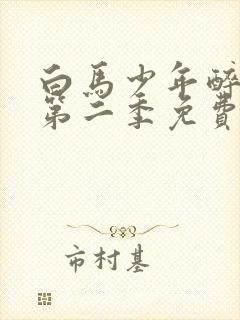 白馬少年醉
第二季免費
市村基